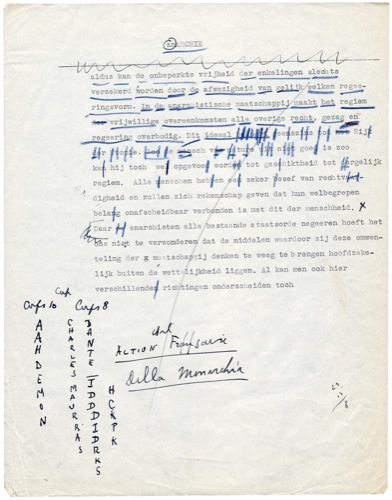 anARCHIE
aldus kan de onbeperkte vrijheid der enkelingen slechts
verzekerd worden door de afwezigheid van gelijk welken regee-
ringsvorm. In de anarchistische maatschappij maakt het regiem
der vrijwillige overeenkomsten alle overige recht, gezag en
regeering overbodig. Dit ideaal
niet goed is zoo
kan hij toch opgevoed worden tot geschiktheid tot
regiem. Alle menschen hebben zeker besef van rechtv
digheid en zullen zich rekenschap geven dat hun welbegrepen
belang onafscheidbaar verbonden is met dit der menschheid. X
Daar anarchisten alle bestaande staatsorde negeeren hoeft het
ons niet te verwonderen dat de middelen waardoor zij deze omwen-
teling der x maatschappij denken te weeg te brengen hoofdzake-
lijk buiten de wettelijkheid liggen. Al kan men ook hier
verschillende richtingen onderscheiden toch
Corps 10
Corps 8
AAHDEMON
CHARLES MAURRAS
DANTE
HCKPK
ACTION Française
Della Monarchia